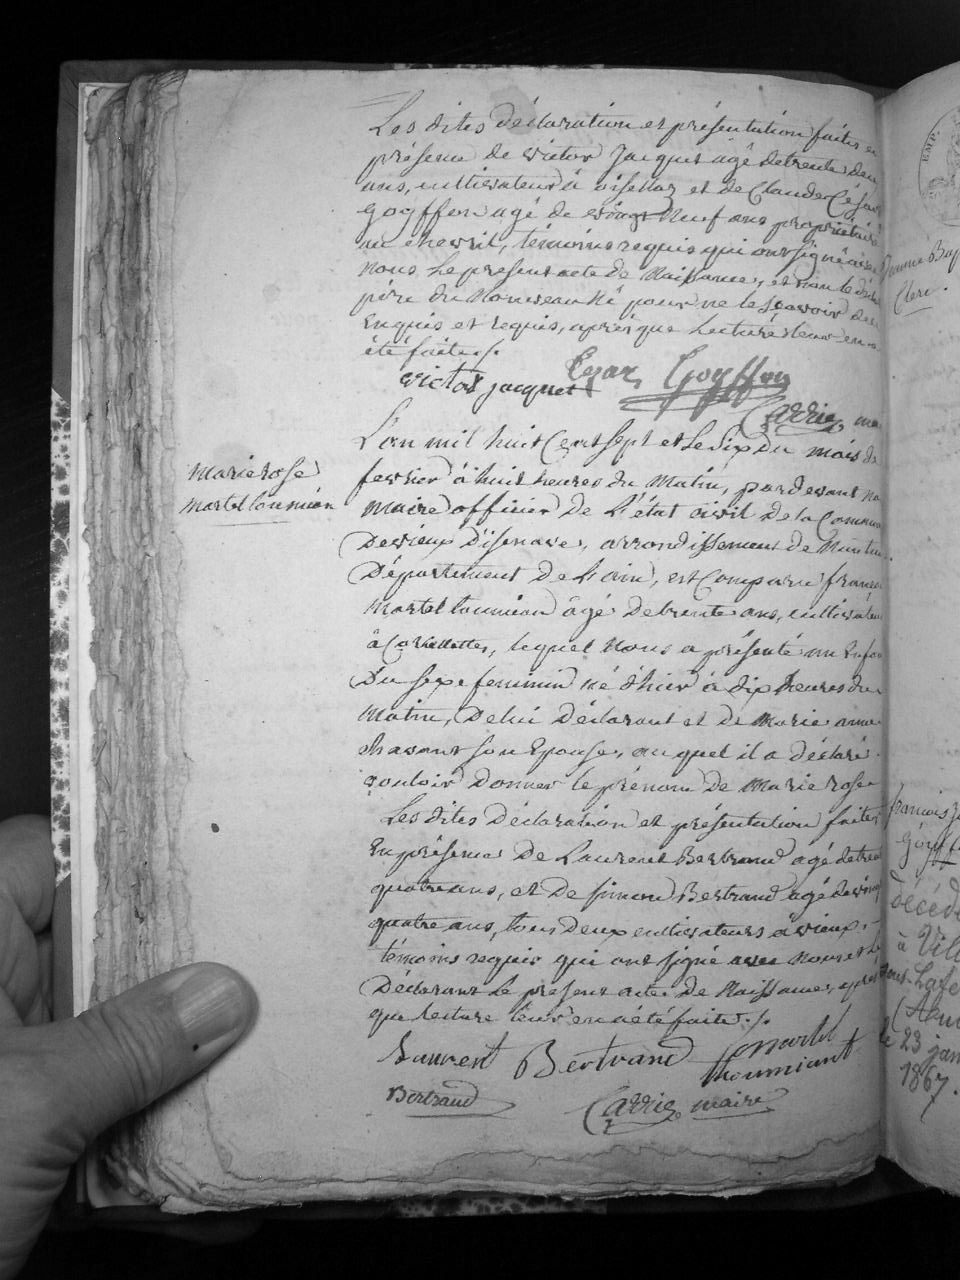 Les dites déclaration et présentution faites en
présence de victor Jacquet agé de trente deux
ans, cultivateur à oisellaz et de Claude César
Goyffon agé de vingt Neuf ans propriétaire
au chevril, témoins requis qui ont signé avec
nous, le présent acte de Naissance, et non le
père du Nouveau Né pour ne le scavoir de ce
Enquis et requis, après que Lecture leur en a
été faite ./.
victor jacquet Cezar Goyffon
Carrie, ma
L'an mil huit Cent sept et le six du mois de
fevrier à huit heures du Matin, pardevant no
maire officier De L'état civil de la Commune
Devieux D'isenave, arrondissement de Nantua
Département De L'ain, est Comparu françois
Martel toumian âgé de trente ans, cultivateur
à Corcelettes, lequel Nous a présenté un Enfan
Du sexe feminin né d'hier à dix heures du
Matin, De lui Déclarant et de Marie anne
chavant son Epouse, auquel il a déclaré
vouloir donner le prénom de Marie rose
Les dites Déclaration et présentution faites
En présence De Laurent Bertrand agé de trente
quatre ans, et De simon Bertrand agé de vingt
quatre ans, tous Deux cultivateurs à vieux,
témoins requis qui ont signé avec nous et le
Déclarant Le présent acte De Naissance, après
que lecture leur en a été faite ./.
Laurent Bertrand martel
thoumiant
Bertrand Carrie maire
Marie rose
Martel toumian
EMP.
Jeanne Bap
Clerc.
françois
Goyff
décédé
à Vill
sous-Lafe
(A
le 23 jan
1867.